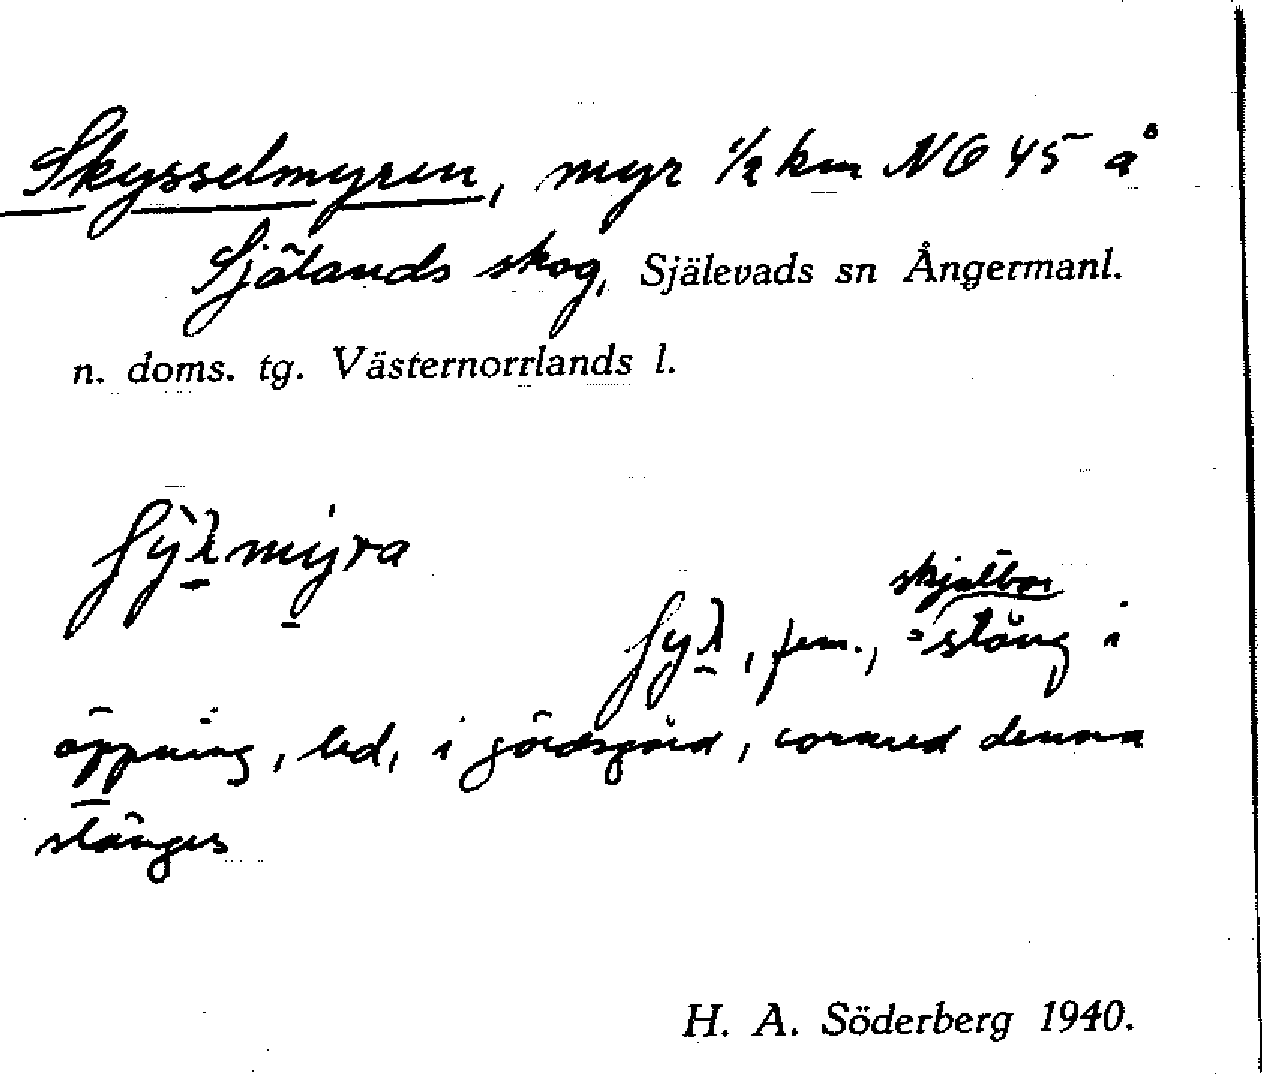 Skysselmyren, myr ½ km NO 45 å
Själands skog, Själevads sn Ångermanl.
n. doms. tg. Västernorrlands l.
myra
skjutbar
fem., = stång i
öppning, led, i gärdsgård, varmed denna
stänges
H. A. Söderberg 1940.